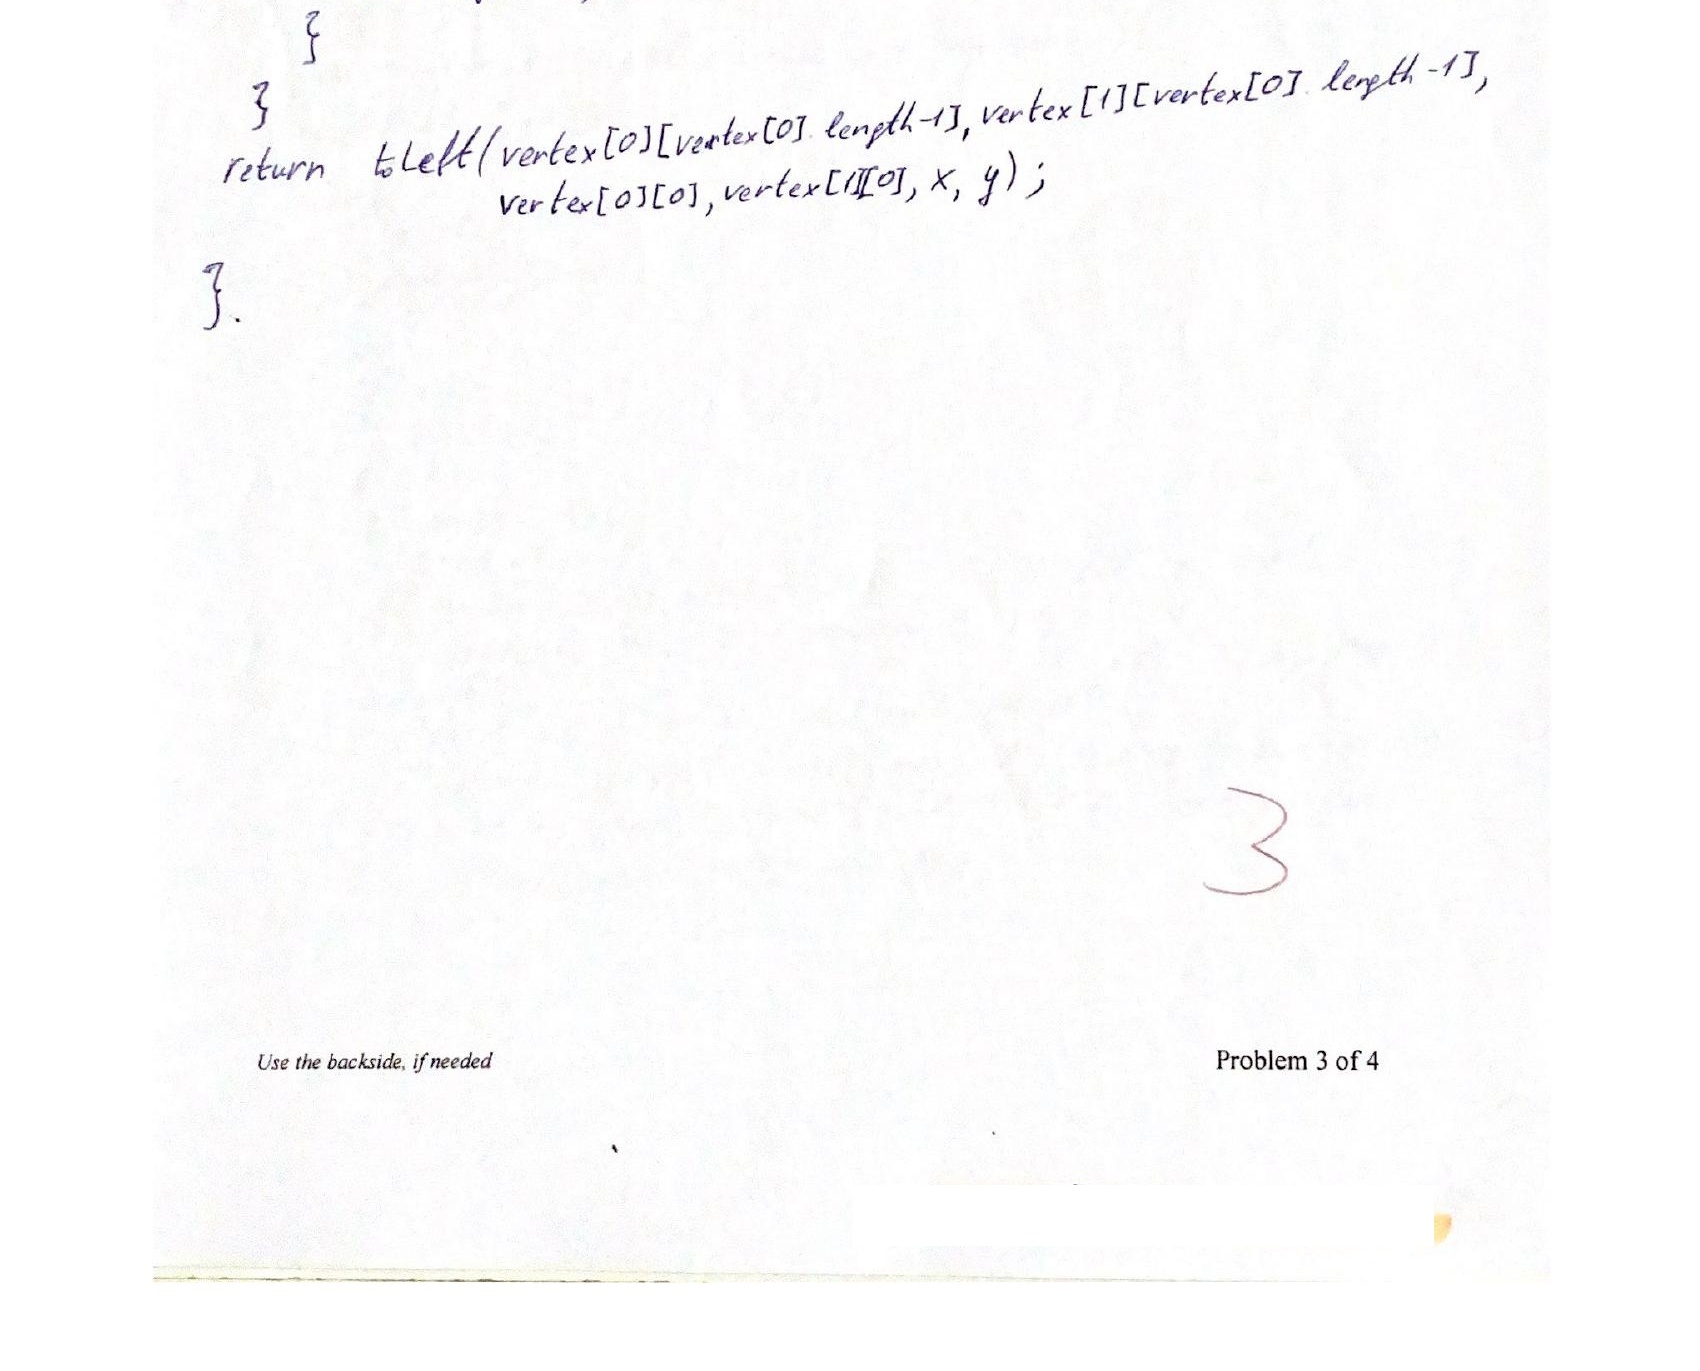 }
}
return toLeft(vertex[0][vertex[0].length-1], vertex[1][vertex[0].length-1],
vertex[0][0], vertex[1][0], x, y);
}.
3
Use the backside, if needed
Problem 3 of 4